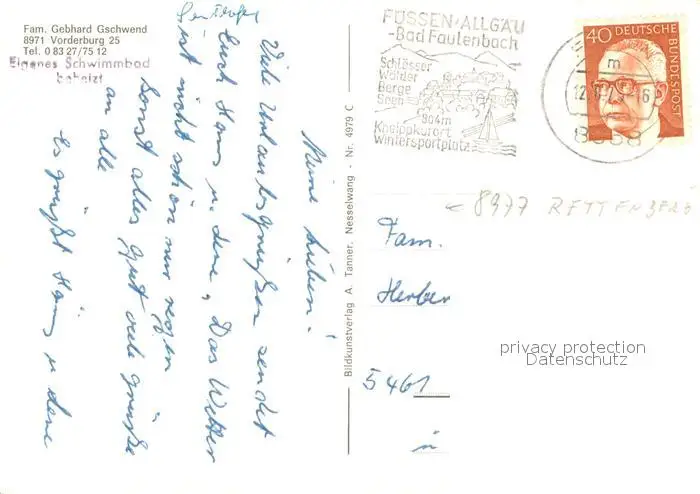 Fam. Gebhard Gschwend
8971 Vorderburg 25
Tel. 0 83 27/75 12
Eigenes Schwimmbad
beheizt
Meine Lieben!
Viele Urlaubsgrüßen sendet
Euch Hans u. Lene, Das Wetter
ist nicht schön nur regen
Sonst alles Gut viele Grüße
an alle
Es grüßt Hans u Lene
Bildkunstverlag A. Tanner, Nesselwang - Nr. 4979 C
FÜSSEN·ALLGÄU
-Bad Faulenbach
Schlösser
Wälder
Berge
Seen
804m
Kneippkurort
Wintersportplatz
m
40 DEUTSCHE
BUNDESPOST
8977 RETTENBERG
Fam.
Herber
5461
privacy protection
Datenschutz